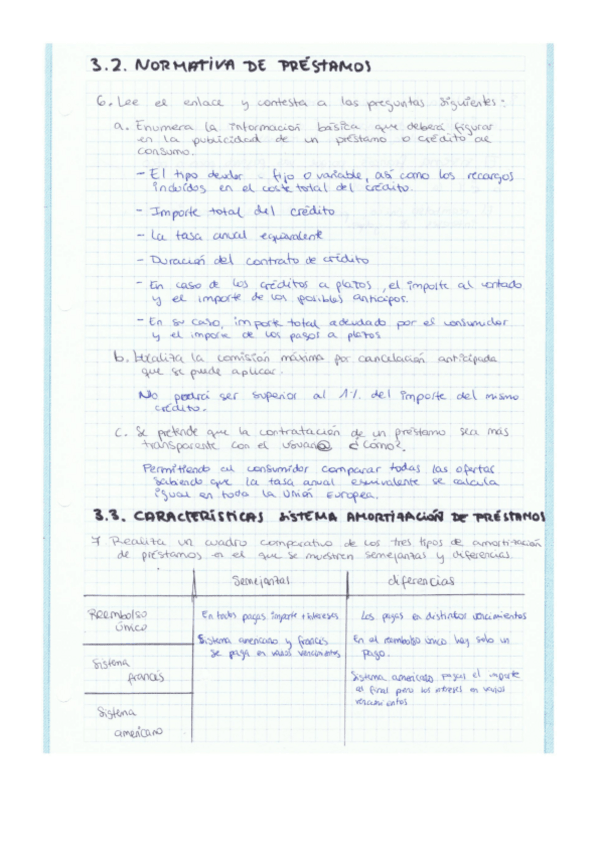 3.2. NORMATIVA DE PRÉSTAMOS
6. Lee el enlace y contesta a las preguntas siguientes:
a. Enumera la información básica que deberá figurar
en la publicidad de un préstamo o crédito de
consumo.
- El tipo deudor fijo o variable, así como los recargos
incluidos en el coste total del crédito.
- Importe total del crédito
- La tasa anual equivalente
- Duración del contrato de crédito
- En caso de los créditos a plazos, el importe al contado
y el importe de los posibles anticipos.
- En su caso, importe total adeudado por el consumidor
y el importe de los pagos a plazos
b. Localiza la comisión máxima por cancelación anticipada
que se puede aplicar.
No podrá ser superior al 1%. del importe del mismo
crédito.
c. Se pretende que la contratación de un préstamo sea más
transparente con el usuari@ ¿Cómo?.
Permitiendo al consumidor comparar todas las ofertas
sabiendo que la tasa anual equivalente se calcula
igual en toda la Unión Europea.
3.3. CARACTERÍSTICAS SISTEMA AMORTIZACIÓN DE PRÉSTAMOS
7 Realiza un cuadro comparativo de los tres tipos de amortización
de préstamos en el que se muestren semejanzas y diferencias.
Semejanzas diferencias
Reembolso
único
En todos pagas importe + intereses
Los pagas en distintos vencimientos
Sistema americano y francés
se paga en varios vencimientos
En el reembolso único hay solo un
pago.
Sistema
francés
Sistema americano pagas el importe
al final pero los intereses en varios
vencimientos
Sistema
americano